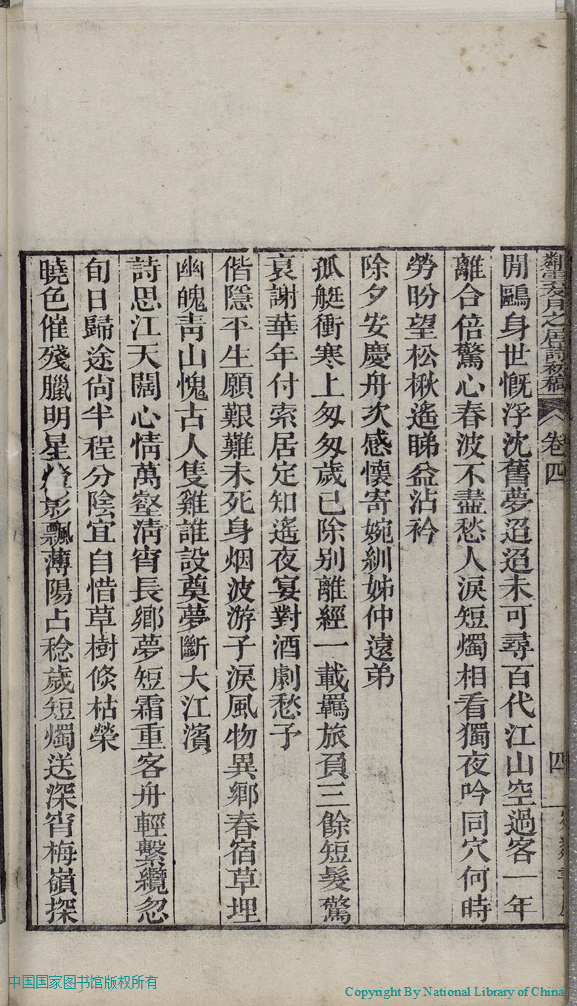 卷四
四
閒鷗身世慨浮沈舊夢迢迢未可尋百代江山空過客一年
離合倍驚心春波不盡愁人淚短燭相看獨夜吟同穴何時
勞盼望松楸遙睇益沾衿
除夕安慶舟次感懷寄婉紃姊仲遠弟
孤艇衝寒上匆匆歲已除別離經一載羈旅負三餘短髮驚
衰謝華年付索居定知遙夜宴對酒劇愁予
偕隱平生願艱難未死身烟波游子淚風物異鄉春宿草埋
幽魄靑山愧古人隻雞誰設奠夢斷大江濱
詩思江天闊心情萬壑淸宵長鄉夢短霜重客舟輕繫纜忽
旬日歸途尙半程分陰宜自惜草樹倐枯榮
曉色催殘臘明星影飄薄陽占稔歲短燭送深宵梅嶺探
中国国家图书馆版权所有
Copyright By National Library of China